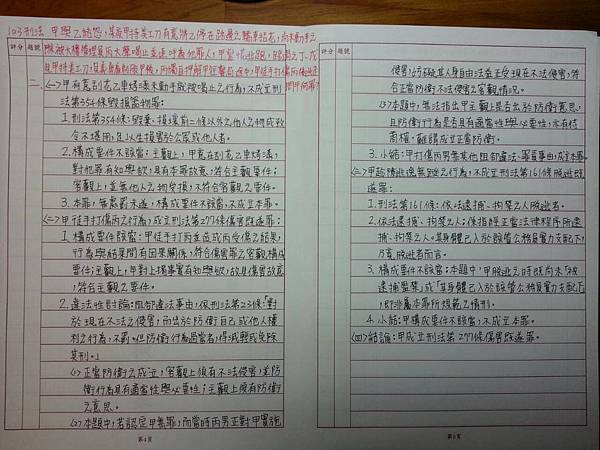 評分 題號
103刑法 甲與乙結怨,某夜甲持美工刀有意將乙停在路邊之轎車烤漆,尚未動手之
際被大樓管理員丙大聲喝止並逕呼為犯罪人,甲
且甲持美工刀,
二、(一)甲有意刮花乙車烤漆未動手就被喝止之行為,不成立刑
法第354條毀損器物罪:
1.刑法第354條:毀棄、損壞前二條以外之他人之物或致
令不堪用,足以生損害於公眾或他人者。
2.構成要件不該當:主觀上,甲意在刮花乙車烤漆,
對他罪有知與欲,具有本罪故意,符合主觀要件;
客觀上,並無他人之物受損,不符合客觀之要件。
3.本罪,無處罰未遂,構成要件不該當,不成立本罪。
(二)甲徒手打傷丙之行為,成立刑法第277條傷害既遂罪:
1.構成要件該當:甲徒手打丙並造成丙受傷之結果,
行為與結果間有因果關係,符合傷害罪之客觀構成
要件;主觀上,甲對上揭事實有知與欲,故具傷害故意
,符合主觀之要件。
2.違法性討論:阻卻違法事由,依刑法第23條「對
於現在不法之侵害,而出於防衛自己或他人權
利之行為,不罰。但防衛行為過當者,得減輕或免除
其刑。」
(1)正當防衛之成立,客觀上須有不法侵害,並防
衛行為具有適當性與必要性;主觀上須有防衛
之意思。
(2)本題中,若認定甲無罪,而當時丙男正對甲實施
第4頁
評分 題號
侵害,
符
合正當防衛不法侵害之客觀情況。
(3)本題中,無法指出甲主觀是出於防衛意思,
且防衛行為是否具有適當性與必要性,亦有待
商榷,難謂成立正當防衛。
3.小結:甲打傷丙男無其他阻卻違法、罪責事由,成立本罪。
(三)甲趁隙拼逃無蹤之行為,不成立刑法第161條脫逃既
遂罪:
1.刑法第161條:依法逮捕、拘禁之人脫逃者。
2.依法逮捕、拘禁之人:係指經正當法律程序所逮
捕、拘禁之人。其身體已入於該管公務員實力支配下,
乃竟脫逃者而言。
3.構成要件不該當:本題中,甲脫逃之時既尚未「被
逮捕監禁」或「其身體已入於該管公務員實力支配」下
,即非屬本罪所規範之情形。
4.小結:甲構成要件不該當,不成立本罪。
(四)結論:甲成立刑法第277條傷害既遂罪。
第5頁